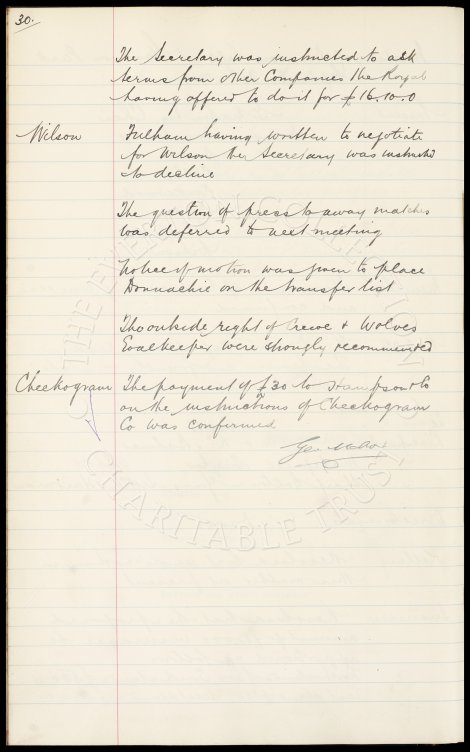 30.
The Secretary was instructed to ask
terms from other Companies the Royal
having offered to do it for £16.10.0
Wilson Fulham having written to negotiate
for Wilson the Secretary was instructed
to decline
The question of press to away matches
was deferred to next meeting
Notice of motion was given to place
Donnachie on the transfer list
The outside right of Crewe & Wolves
Goalkeeper were strongly recommended
Checkogram The payment of £30 to Hampson & Co
on the instructions of Checkogram
Co was confirmed
Geo
THE EVERTON COLLECTION
CHARITABLE TRUST